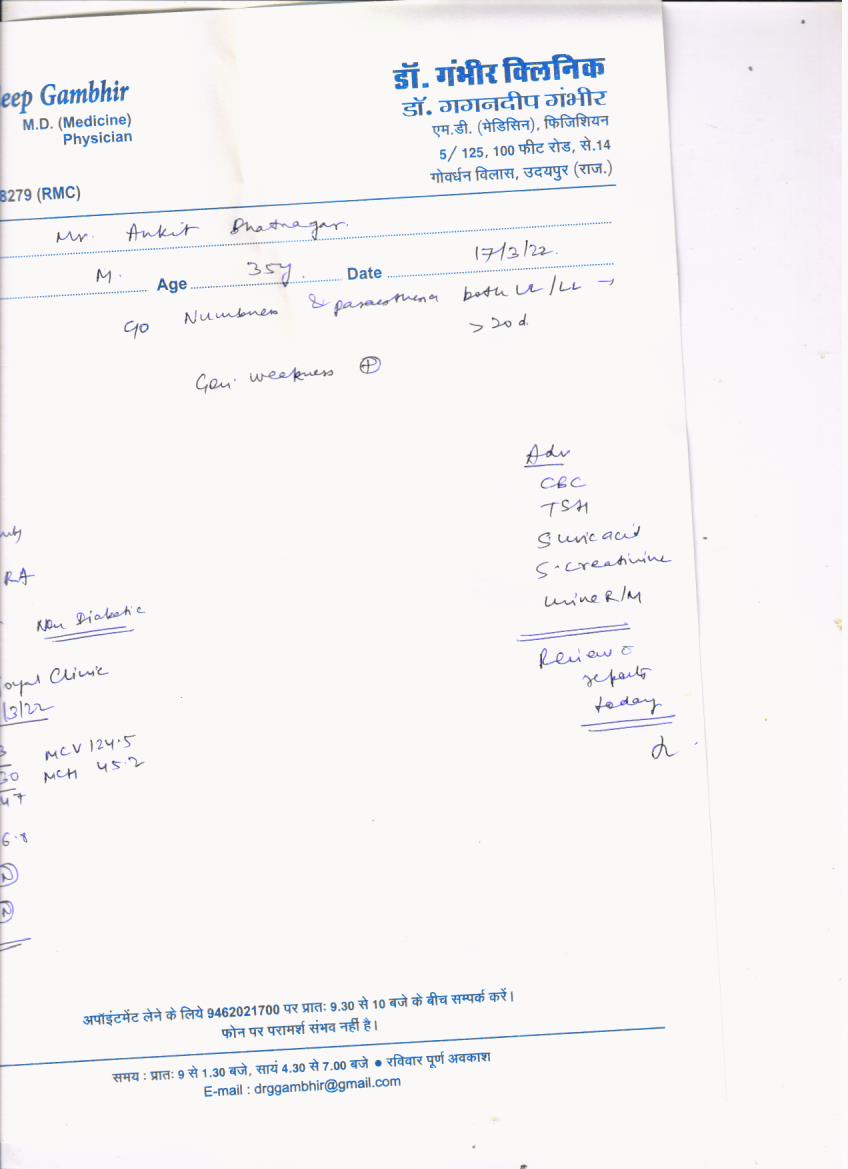 eep Gambhir
M.D. (Medicine)
Physician
8279 (RMC)
डॉ. गंभीर क्लिनिक
डॉ. गगनदीप गंभीर
एम.डी. (मेडिसिन), फिजिशियन
5/ 125, 100 फीट रोड, से.14
गोवर्धन विलास, उदयपुर (राज.)
Mr. Ankit Bhatnagar.
M. Age 35y. Date 17/3/22.
c/o Numbness & paraesthesia both UL/LL →
> 20 d.
Gen. weakness ⊕
Adv
CBC
TSH
S uric acid
S-creatinine
Urine R/M
Review c̄
reports
today
RA
Non Diabetic
oyal Clinic
/3/22
3 MCV 124.5
30 MCH 45.2
47
6.8
N
N
अपॉइंटमेंट लेने के लिये 9462021700 पर प्रातः 9.30 से 10 बजे के बीच सम्पर्क करें।
फोन पर परामर्श संभव नहीं है।
समय : प्रातः 9 से 1.30 बजे, सायं 4.30 से 7.00 बजे ● रविवार पूर्ण अवकाश
E-mail : drggambhir@gmail.com